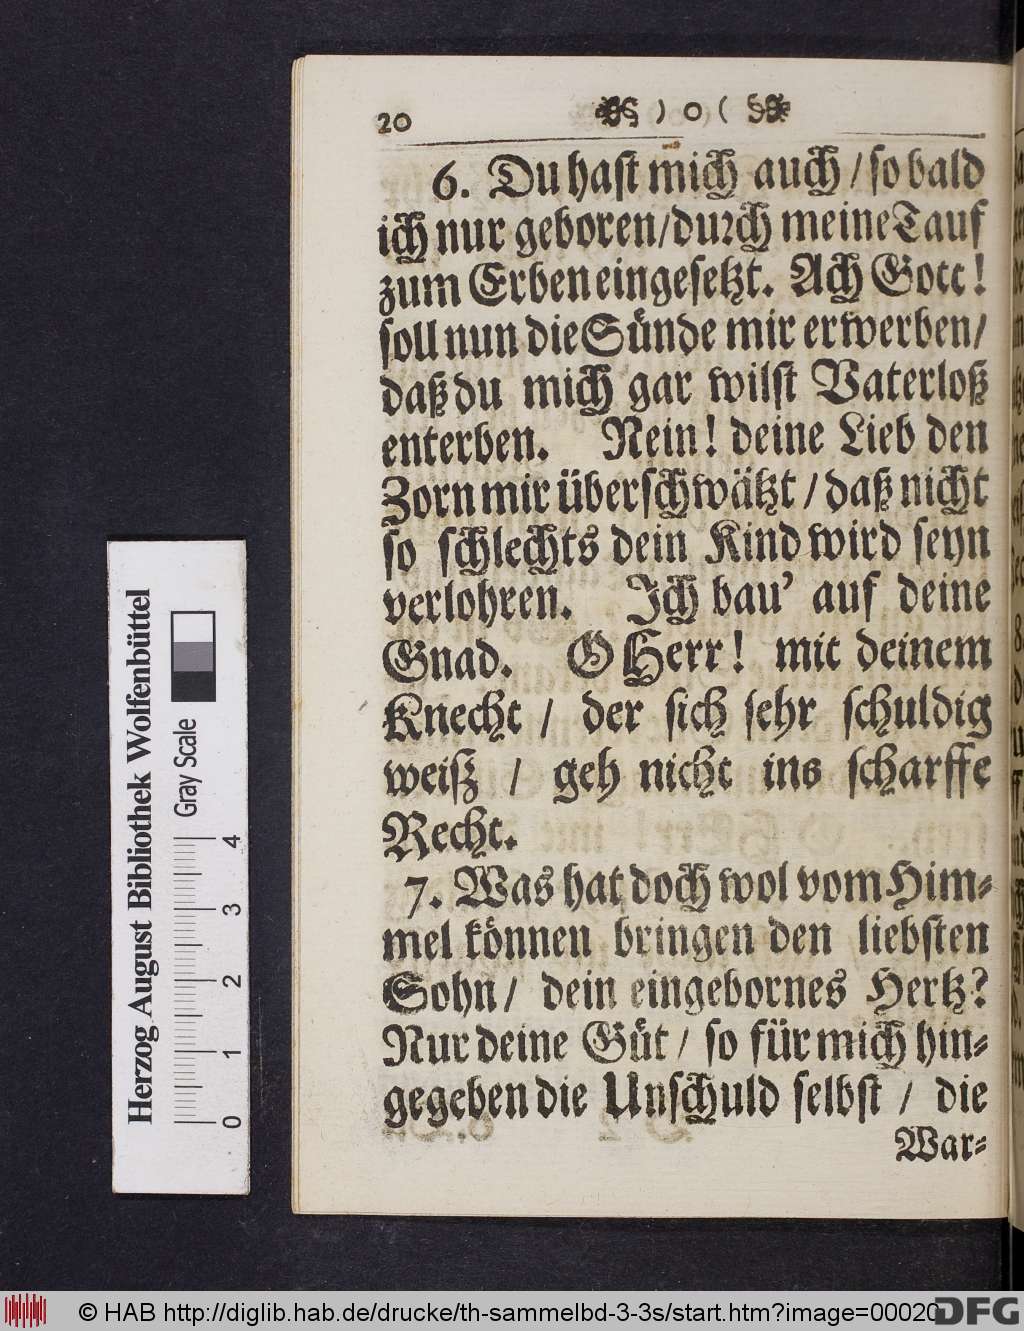 20 ) o (
6. Du hast mich auch / so bald
ich nur geboren / durch meine Tauf
zum Erben eingesetzt. Ach Gott!
soll nun die Sünde mir erwerben /
daß du mich gar wilst Vaterloß
enterben. Nein! deine Lieb den
Zorn mir überschwätzt / daß nicht
so schlechts dein Kind wird seyn
verlohren. Ich bau' auf deine
Gnad. O Herr! mit deinem
Knecht / der sich sehr schuldig
weiß / geh nicht ins scharffe
Recht.
7. Was hat doch wol vom Him-
mel können bringen den liebsten
Sohn / dein eingebornes Hertz?
Nur deine Güt / so für mich hin-
gegeben die Unschuld selbst / die
War-
Herzog August Bibliothek Wolfenbüttel
Gray Scale
0 1 2 3 4
© HAB http://diglib.hab.de/drucke/th-sammelbd-3-3s/start.htm?image=00020
DFG